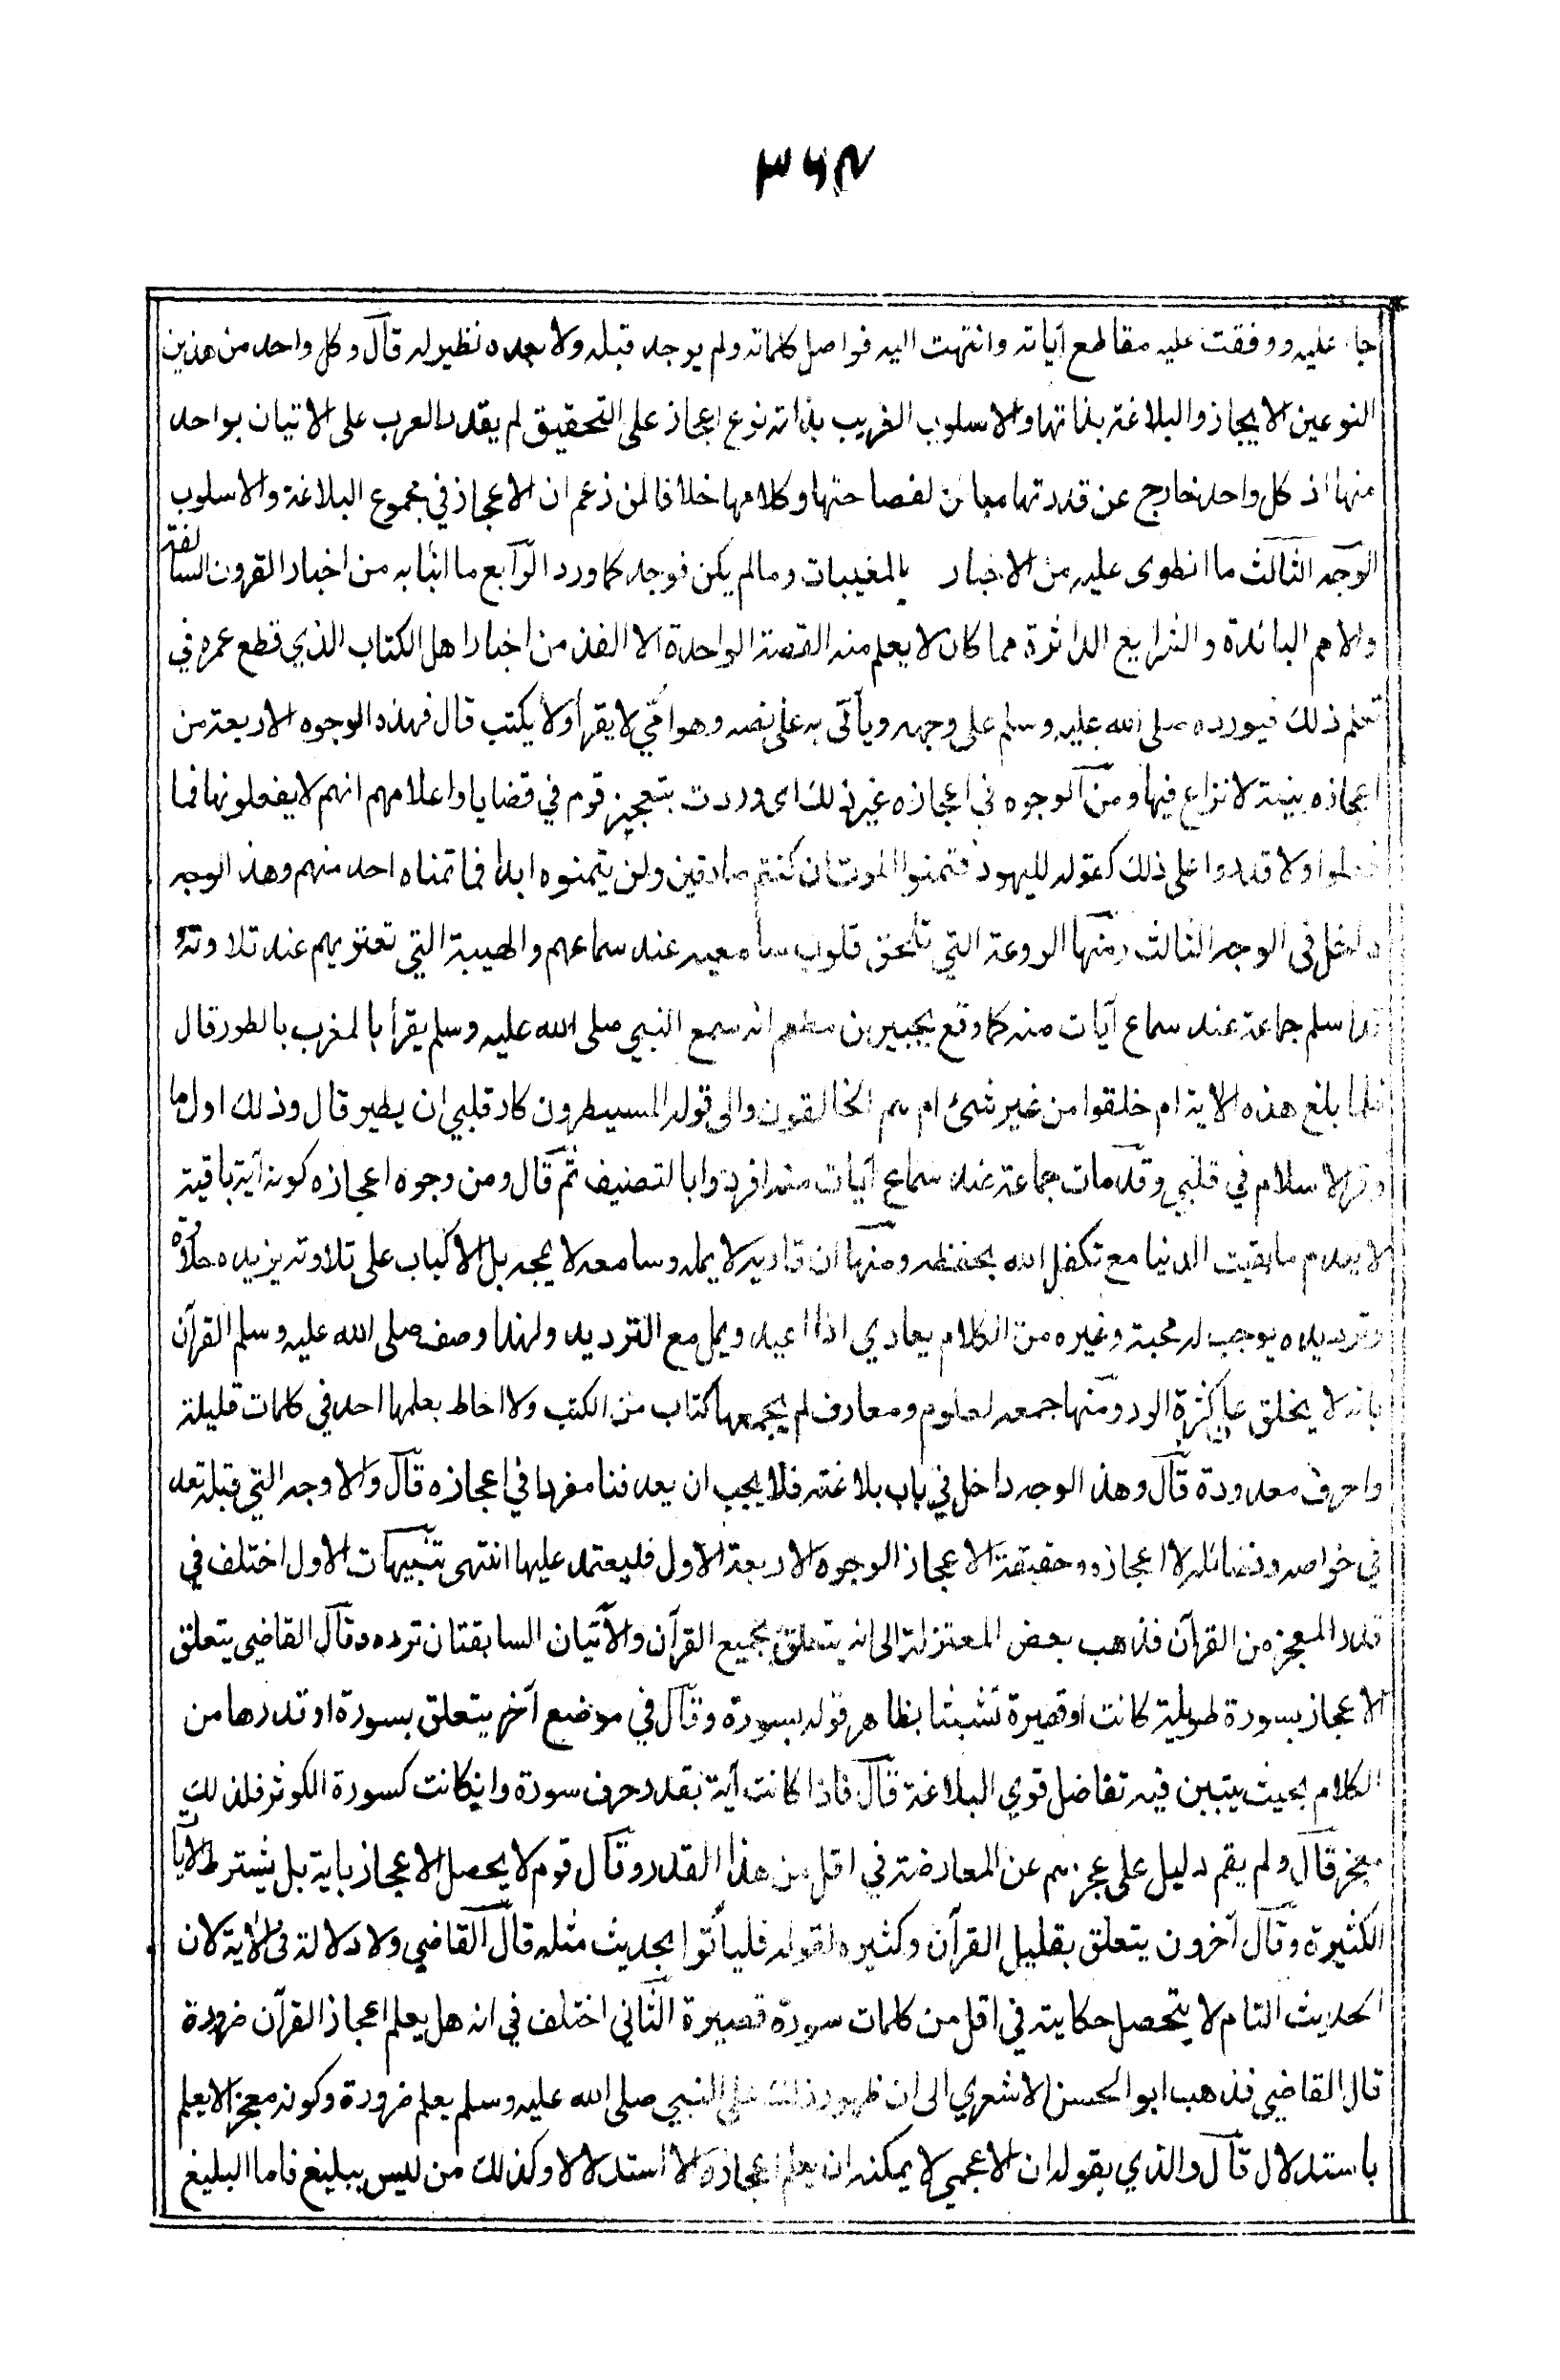 ٣٦٤
جاء عليه ووقفت عليه مقاطع آياته وانتهت اليه فواصل كلماته ولم يوجد قبله ولا بعده نظير له قال وكل واحد من هذين
النوعين الايجاز والبلاغة بذاتها والاسلوب الغريب بذاته نوع اعجاز على التحقيق لم يقدر العرب على الاتيان بواحد
منها اذ كل واحد خارج عن قدرتها مبائن لفصاحتها وكلامها خلافا لمن زعم ان الاعجاز في مجموع البلاغة والاسلوب
الوجه الثالث ما انطوى عليه من الاخبار بالمغيبات ومالم يكن فوجد كما ورد الرابع ما انبأ به من اخبار القرون السالفة
والامم البائدة والشرايع الداثرة مما كان لا يعلم منه القصة الواحدة الا الفذ من اخبار اهل الكتاب الذي قطع عمره في
تعلم ذلك فيورده صلى الله عليه وسلم على وجهه ويأتى به على نصه وهو امي لا يقرأ ولا يكتب قال فهذه الوجوه الاربعة من
اعجازه بينة لا نزاع فيها ومن الوجوه في اعجازه غير ذلك اى وردت بتعجيز قوم في قضايا واعلامهم انهم لا يفعلونها فما
فعلوا ولا قدروا على ذلك كقوله لليهود فتمنوا الموت ان كنتم صادقين ولن يتمنوه ابدا فما تمناه احد منهم وهذ الوجه
داخل فى الوجه الثالث ومنها الروعة التي تلحق قلوب سامعيه عند سماعهم والهيبة التي تعتريهم عند تلاوته و
قد اسلم جماعة عند سماع آيات منه كما وقع لجبير بن مطعم انه سمع النبي صلى الله عليه وسلم يقرأ بالمغرب بالطور قال
فلما بلغ هذه الاية ام خلقوا من غير شئ ام هم الخالقون والى قوله المسيطرون كاد قلبي ان يطير قال وذلك اول ما
وقر الاسلام في قلبي وقد مات جماعة عند سماع آيات منه افردوا بالتصنيف ثم قال ومن وجوه اعجازه كونه آية باقية
لا يعدم ما بقيت الدنيا مع تكفل الله بحفظه ومنها ان قاريه لا يمله وسامعه لا يمجه بل الاكباب على تلاوته يزيده حلاوة
وترديده يوجب له محبة وغيره من الكلام يعادي اذا اعيد ويمل مع الترديد ولهذا وصف صلى الله عليه وسلم القرآن
بانه لا يخلق على كثرة الرد ومنها جمعه لعلوم ومعارف لم يجمعها كتاب من الكتب ولا احاط بعلمها احد في كلمات قليلة
واحرف معدودة قال وهذ الوجه داخل في باب بلاغته فلا يجب ان يعد فنا مفردا في اعجازه قال والاوجه التي قبله تعد
في خواصه وفضائله لا اعجازه وحقيقة الاعجاز الوجوه الاربعة الاول فليعتمد عليها انتهى تنبيهات الاول اختلف في
قدر المعجز من القرآن فذهب بعض المعتزلة الى انه يتعلق بجميع القرآن والآيتان السابقتان ترده وقال القاضي يتعلق
الاعجاز بسورة طويلة كانت او قصيرة تشبثا بظاهر قوله بسورة وقال في موضع آخر يتعلق بسورة او قدرها من
الكلام بحيث يتبين فيه تفاضل قوي البلاغة قال فاذا كانت آية بقدر حرف سورة وانكانت كسورة الكوثر فلذلك
معجز قال ولم يقم دليل على عجزهم عن المعارضة في اقل من هذا القدر وقال قوم لا يحصل الاعجاز باية بل يشترط الآيات
الكثيرة وقال آخرون يتعلق بقليل القرآن وكثيره لقوله فليأتوا بحديث مثله قال القاضي ولا دلالة فى الآية لان
الحديث التام لا يتحصل حكايته في اقل من كلمات سورة قصيرة الثاني اختلف في انه هل يعلم اعجاز القرآن ضرورة
قال القاضي فذهب ابو الحسن الاشعري الى ان ظهور ذلك على النبي صلى الله عليه وسلم يعلم ضرورة وكونه معجزا لا يعلم
باستدلال قال والذي بقوله ان الاعجمي لا يمكنه ان يعلم اعجازه الا استدلالا وكذلك من ليس ببليغ فاما البليغ